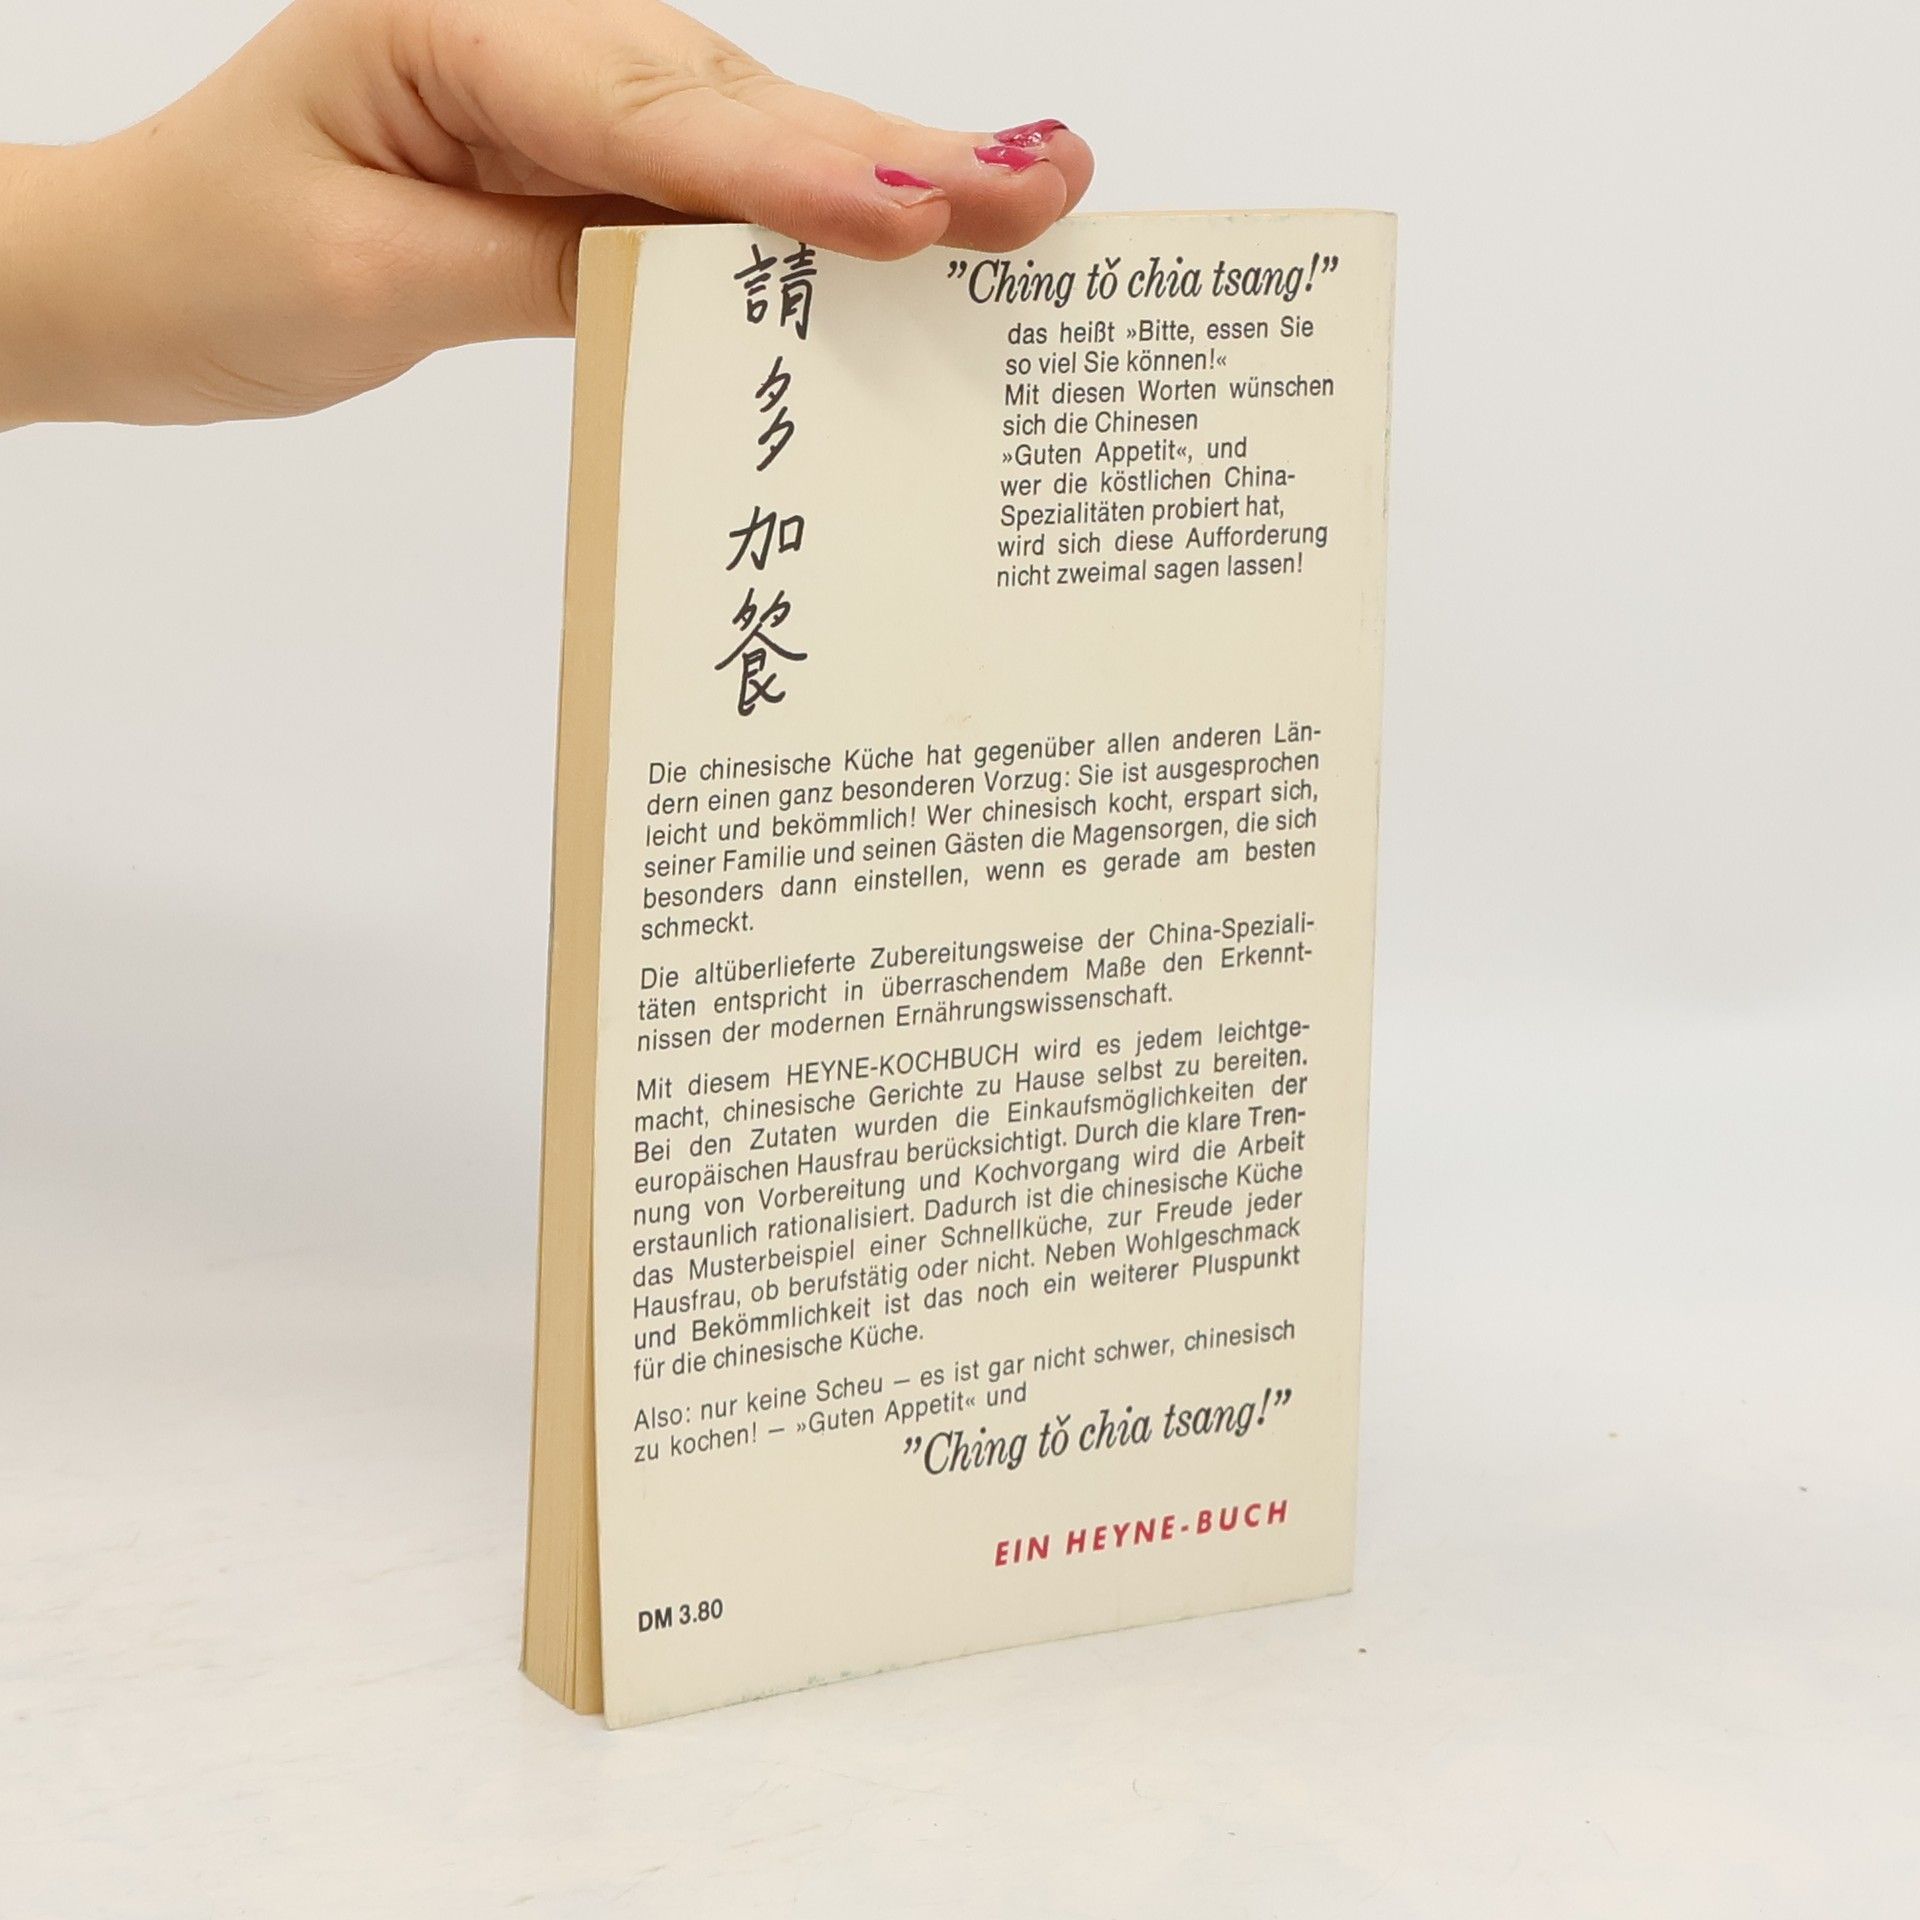 請多加餐
”Ching tŏ chia tsang!”
das heißt »Bitte, essen Sie
so viel Sie können!«
Mit diesen Worten wünschen
sich die Chinesen
»Guten Appetit«, und
wer die köstlichen China-
Spezialitäten probiert hat,
wird sich diese Aufforderung
nicht zweimal sagen lassen!
Die chinesische Küche hat gegenüber allen anderen Län-
dern einen ganz besonderen Vorzug: Sie ist ausgesprochen
leicht und bekömmlich! Wer chinesisch kocht, erspart sich,
seiner Familie und seinen Gästen die Magensorgen, die sich
besonders dann einstellen, wenn es gerade am besten
schmeckt.
Die altüberlieferte Zubereitungsweise der China-Speziali-
täten entspricht in überraschendem Maße den Erkennt-
nissen der modernen Ernährungswissenschaft.
Mit diesem HEYNE-KOCHBUCH wird es jedem leichtge-
macht, chinesische Gerichte zu Hause selbst zu bereiten.
Bei den Zutaten wurden die Einkaufsmöglichkeiten der
europäischen Hausfrau berücksichtigt. Durch die klare Tren-
nung von Vorbereitung und Kochvorgang wird die Arbeit
erstaunlich rationalisiert. Dadurch ist die chinesische Küche
das Musterbeispiel einer Schnellküche, zur Freude jeder
Hausfrau, ob berufstätig oder nicht. Neben Wohlgeschmack
und Bekömmlichkeit ist das noch ein weiterer Pluspunkt
für die chinesische Küche.
Also: nur keine Scheu – es ist gar nicht schwer, chinesisch
zu kochen! – »Guten Appetit« und
”Ching tŏ chia tsang!”
EIN HEYNE-BUCH
DM 3.80